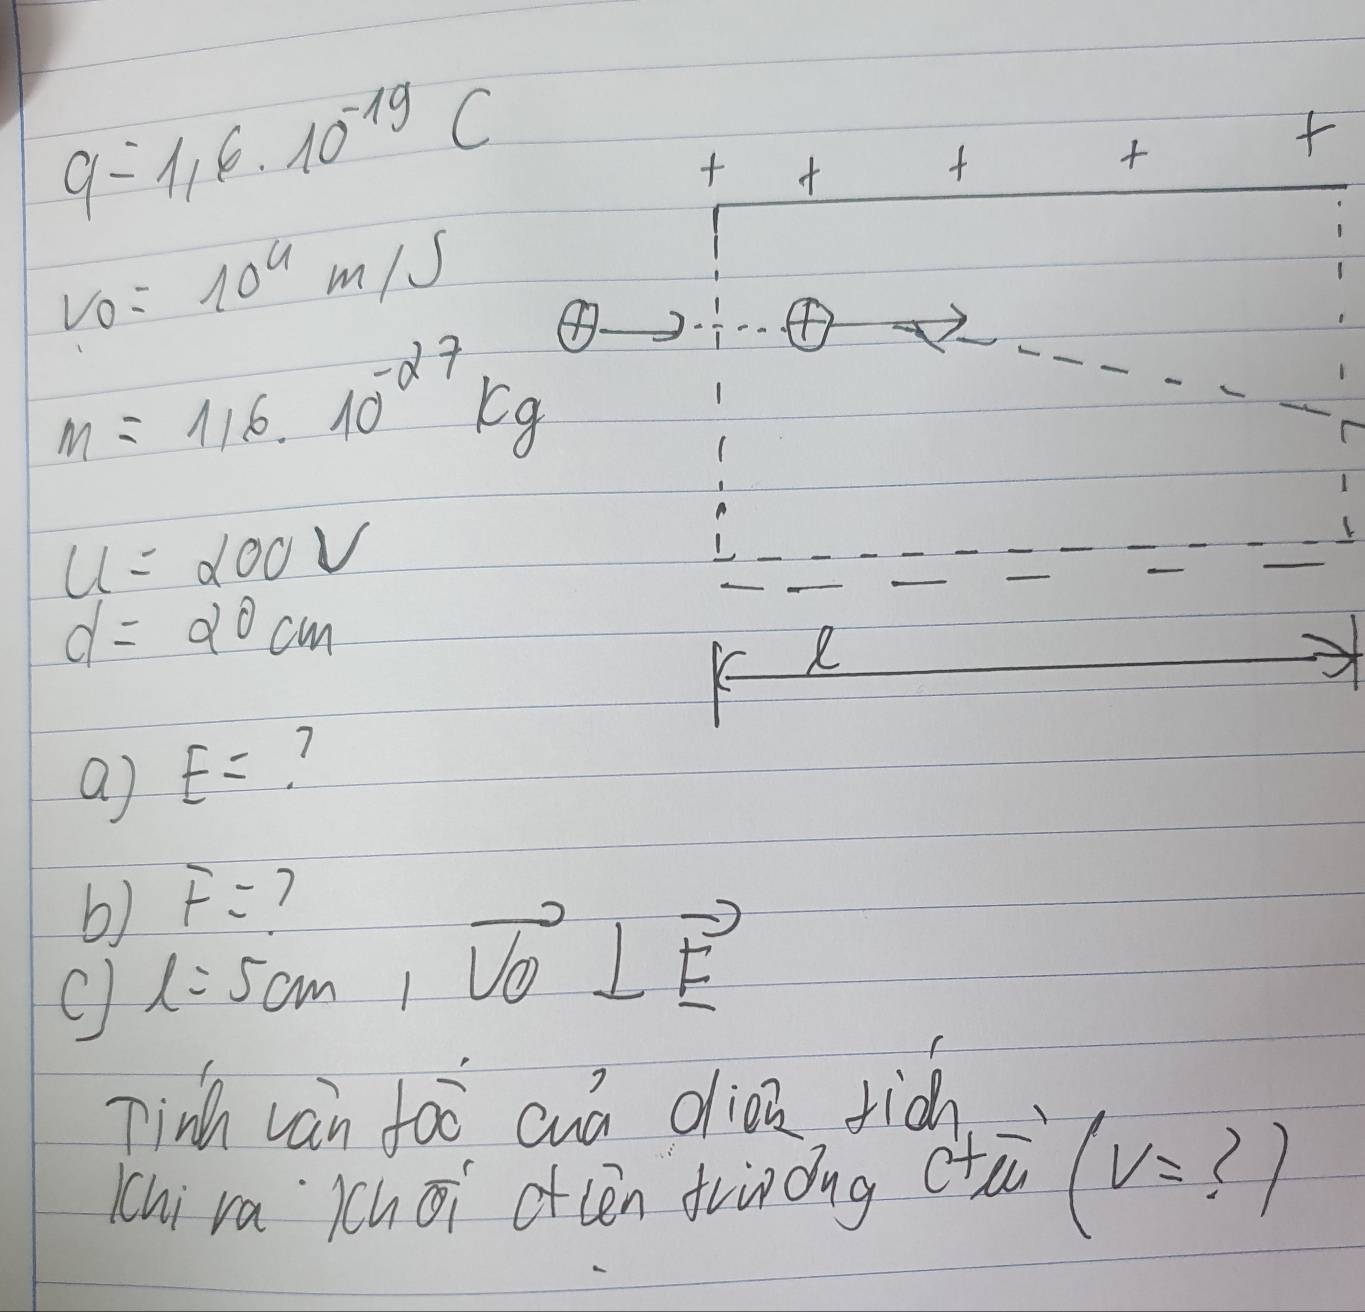 q = 1,6. 10⁻¹⁹ C
+ + + + +
v0 = 10⁴ m/s
m = 1,6. 10⁻²⁷ kg
U = 200V
d = 20 cm
l
a) E = ?
b) F = ?
c) l = 5cm , V0 ⊥ E
Tính vận tốc của điện tích
khi ra khỏi điện trường đều (v = ?)